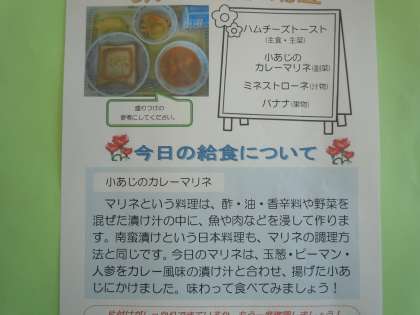 ハムチーズトースト
(主食・主菜)
小あじの
カレーマリネ(副菜)
ミネストローネ(汁物)
バナナ(果物)
盛りつけの
参考にしてください。
今日の給食について
小あじのカレーマリネ
マリネという料理は、酢・油・香辛料や野菜を
混ぜた漬け汁の中に、魚や肉などを浸して作りま
す。南蛮漬けという日本料理も、マリネの調理方
法と同じです。今日のマリネは、玉葱・ピーマン・
人参をカレー風味の漬け汁と合わせ、揚げた小あ
じにかけました。味わって食べてみましょう！